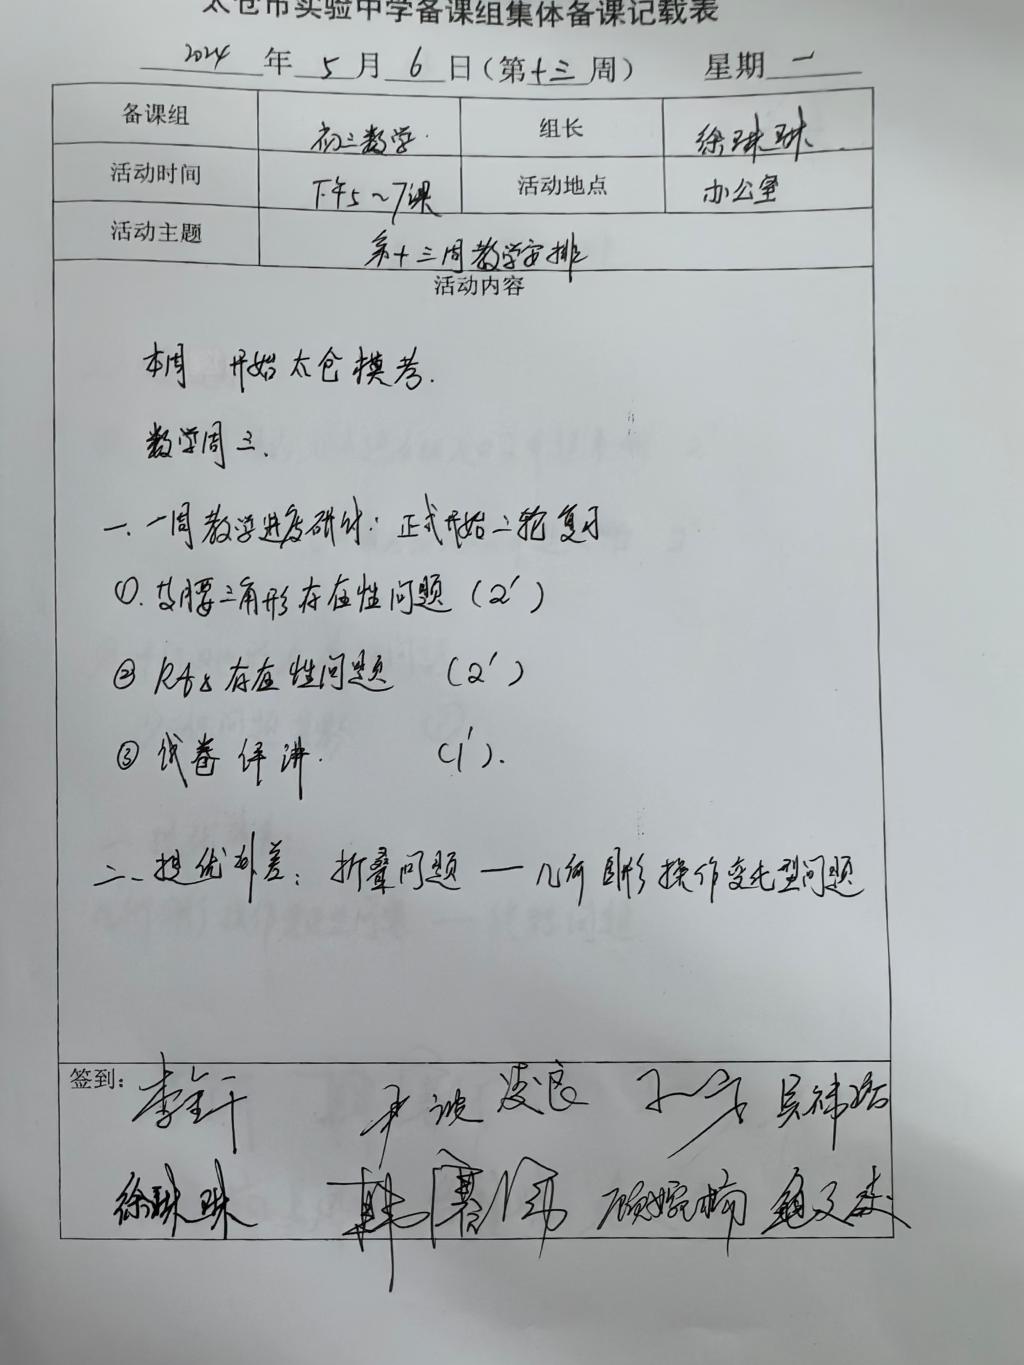 太仓市实验中学备课组集体备课记载表
2024年5月6日（第十三周） 星期一
备课组 初三数学 组长 徐琳琳
活动时间 下午5~7课 活动地点 办公室
活动主题 第十三周教学安排
活动内容
本周 开始太仓模考.
数学周三.
一、一周教学进度研讨：正式开始二轮复习
①. 等腰三角形存在性问题（2'）
② Rt△存在性问题 （2'）
③ 试卷评讲. （1'）.
二、提优补差：折叠问题 — 几何图形操作变化型问题
签到：
徐琳琳